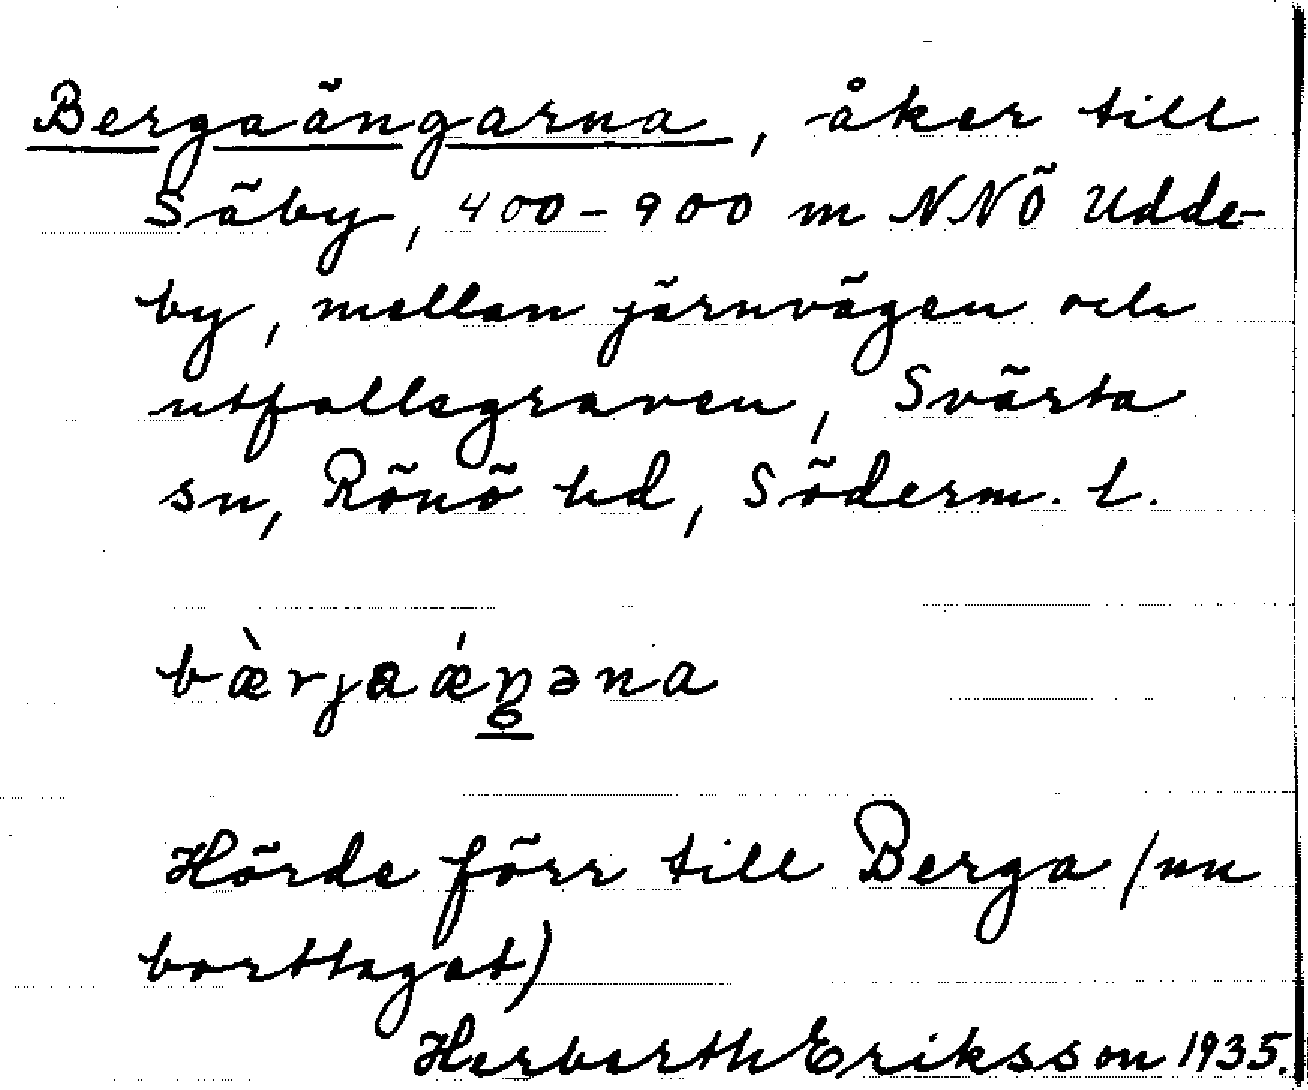 Bergaängarna, åker till
Säby, 400-900 m NNÖ Udde-
by, mellan järnvägen och
utfallsgraven, Svärta
sn, Rönö hd, Söderm. l.
bæ̀rjaǽŋ̥əna
Hörde förr till Berga (nu
borttaget)
Herberth Eriksson 1935.